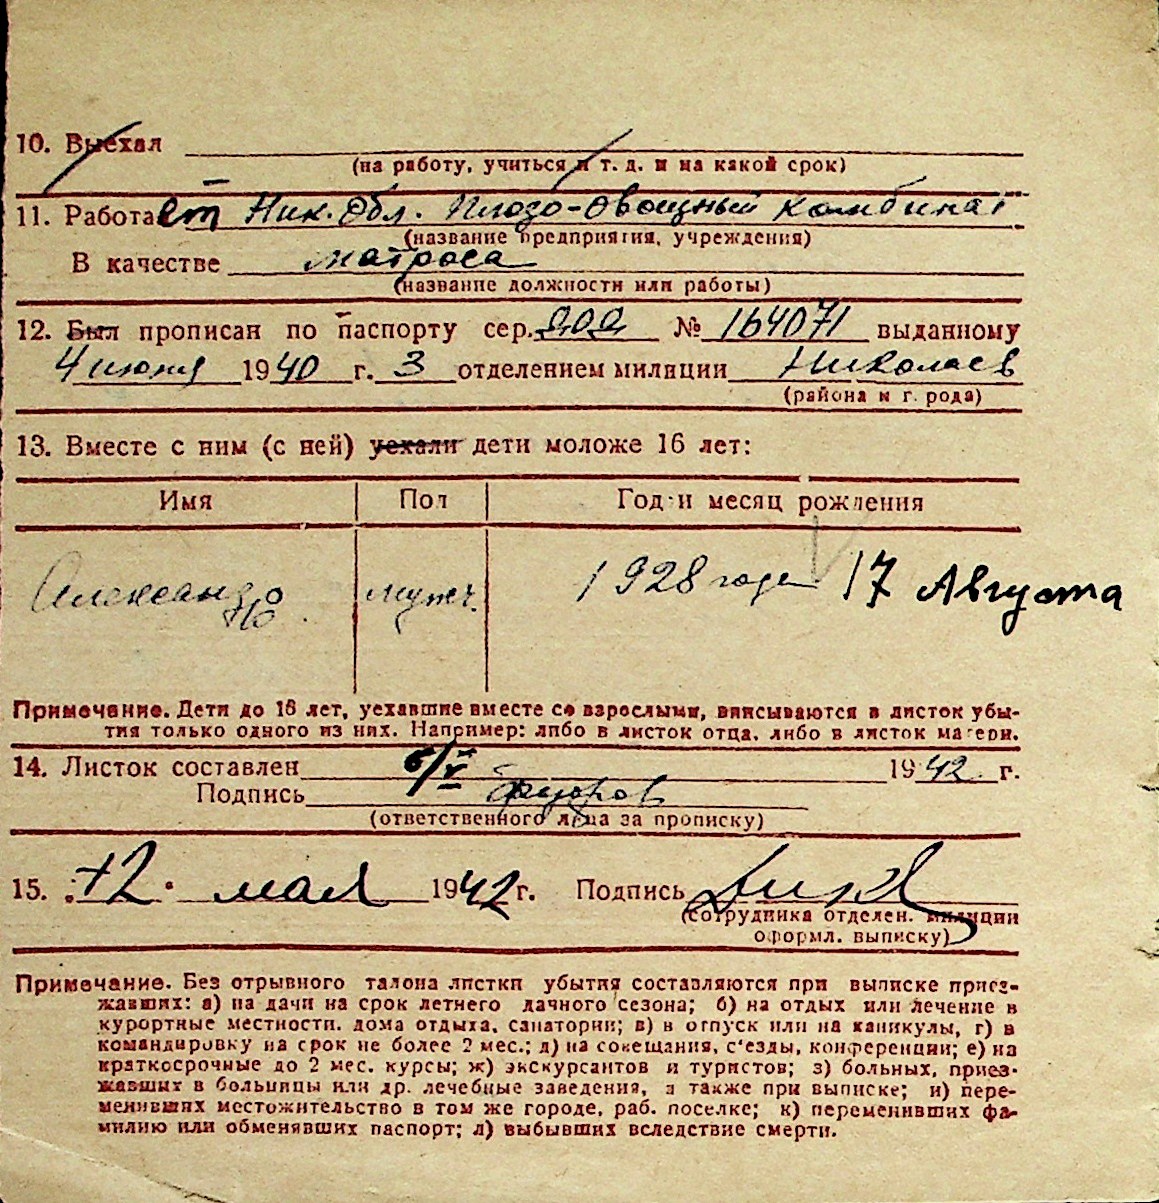 10. Выехал
(на работу, учиться и т. д. и на какой срок)
11. Работает Ник. Обл. Плодо-Овощный комбинат
(название предприятия, учреждения)
В качестве матроса
(название должности или работы)
12. Был прописан по паспорту сер. № 164071 выданному
4 июня 1940 г. 3 отделением милиции Николаев
(района и г. рода)
13. Вместе с ним (с ней) уехали дети моложе 16 лет:
Имя Пол Год и месяц рождения
Александр мужч. 1928 года 17 Августа
Примечание. Дети до 16 лет, уехавшие вместе со взрослыми, вписываются в листок убы-
тия только одного из них. Например: либо в листок отца, либо в листок матери.
14. Листок составлен 6/V 1942 г.
Подпись
(ответственного лица за прописку)
15. 12. мая 1942 г. Подпись
(сотрудника отделен. милиции
оформл. выписку)
Примечание. Без отрывного талона листки убытия составляются при выписке приез-
жавших: а) на дачи на срок летнего дачного сезона; б) на отдых или лечение в
курортные местности, дома отдыха, санатории; в) в отпуск или на каникулы, г) в
командировку на срок не более 2 мес.; д) на совещания, с'езды, конференции; е) на
краткосрочные до 2 мес. курсы; ж) экскурсантов и туристов; з) больных, приез-
жавших в больницы или др. лечебные заведения, а также при выписке; и) пере-
менивших местожительство в том же городе, раб. поселке; к) переменивших фа-
милию или обменявших паспорт; л) выбывших вследствие смерти.